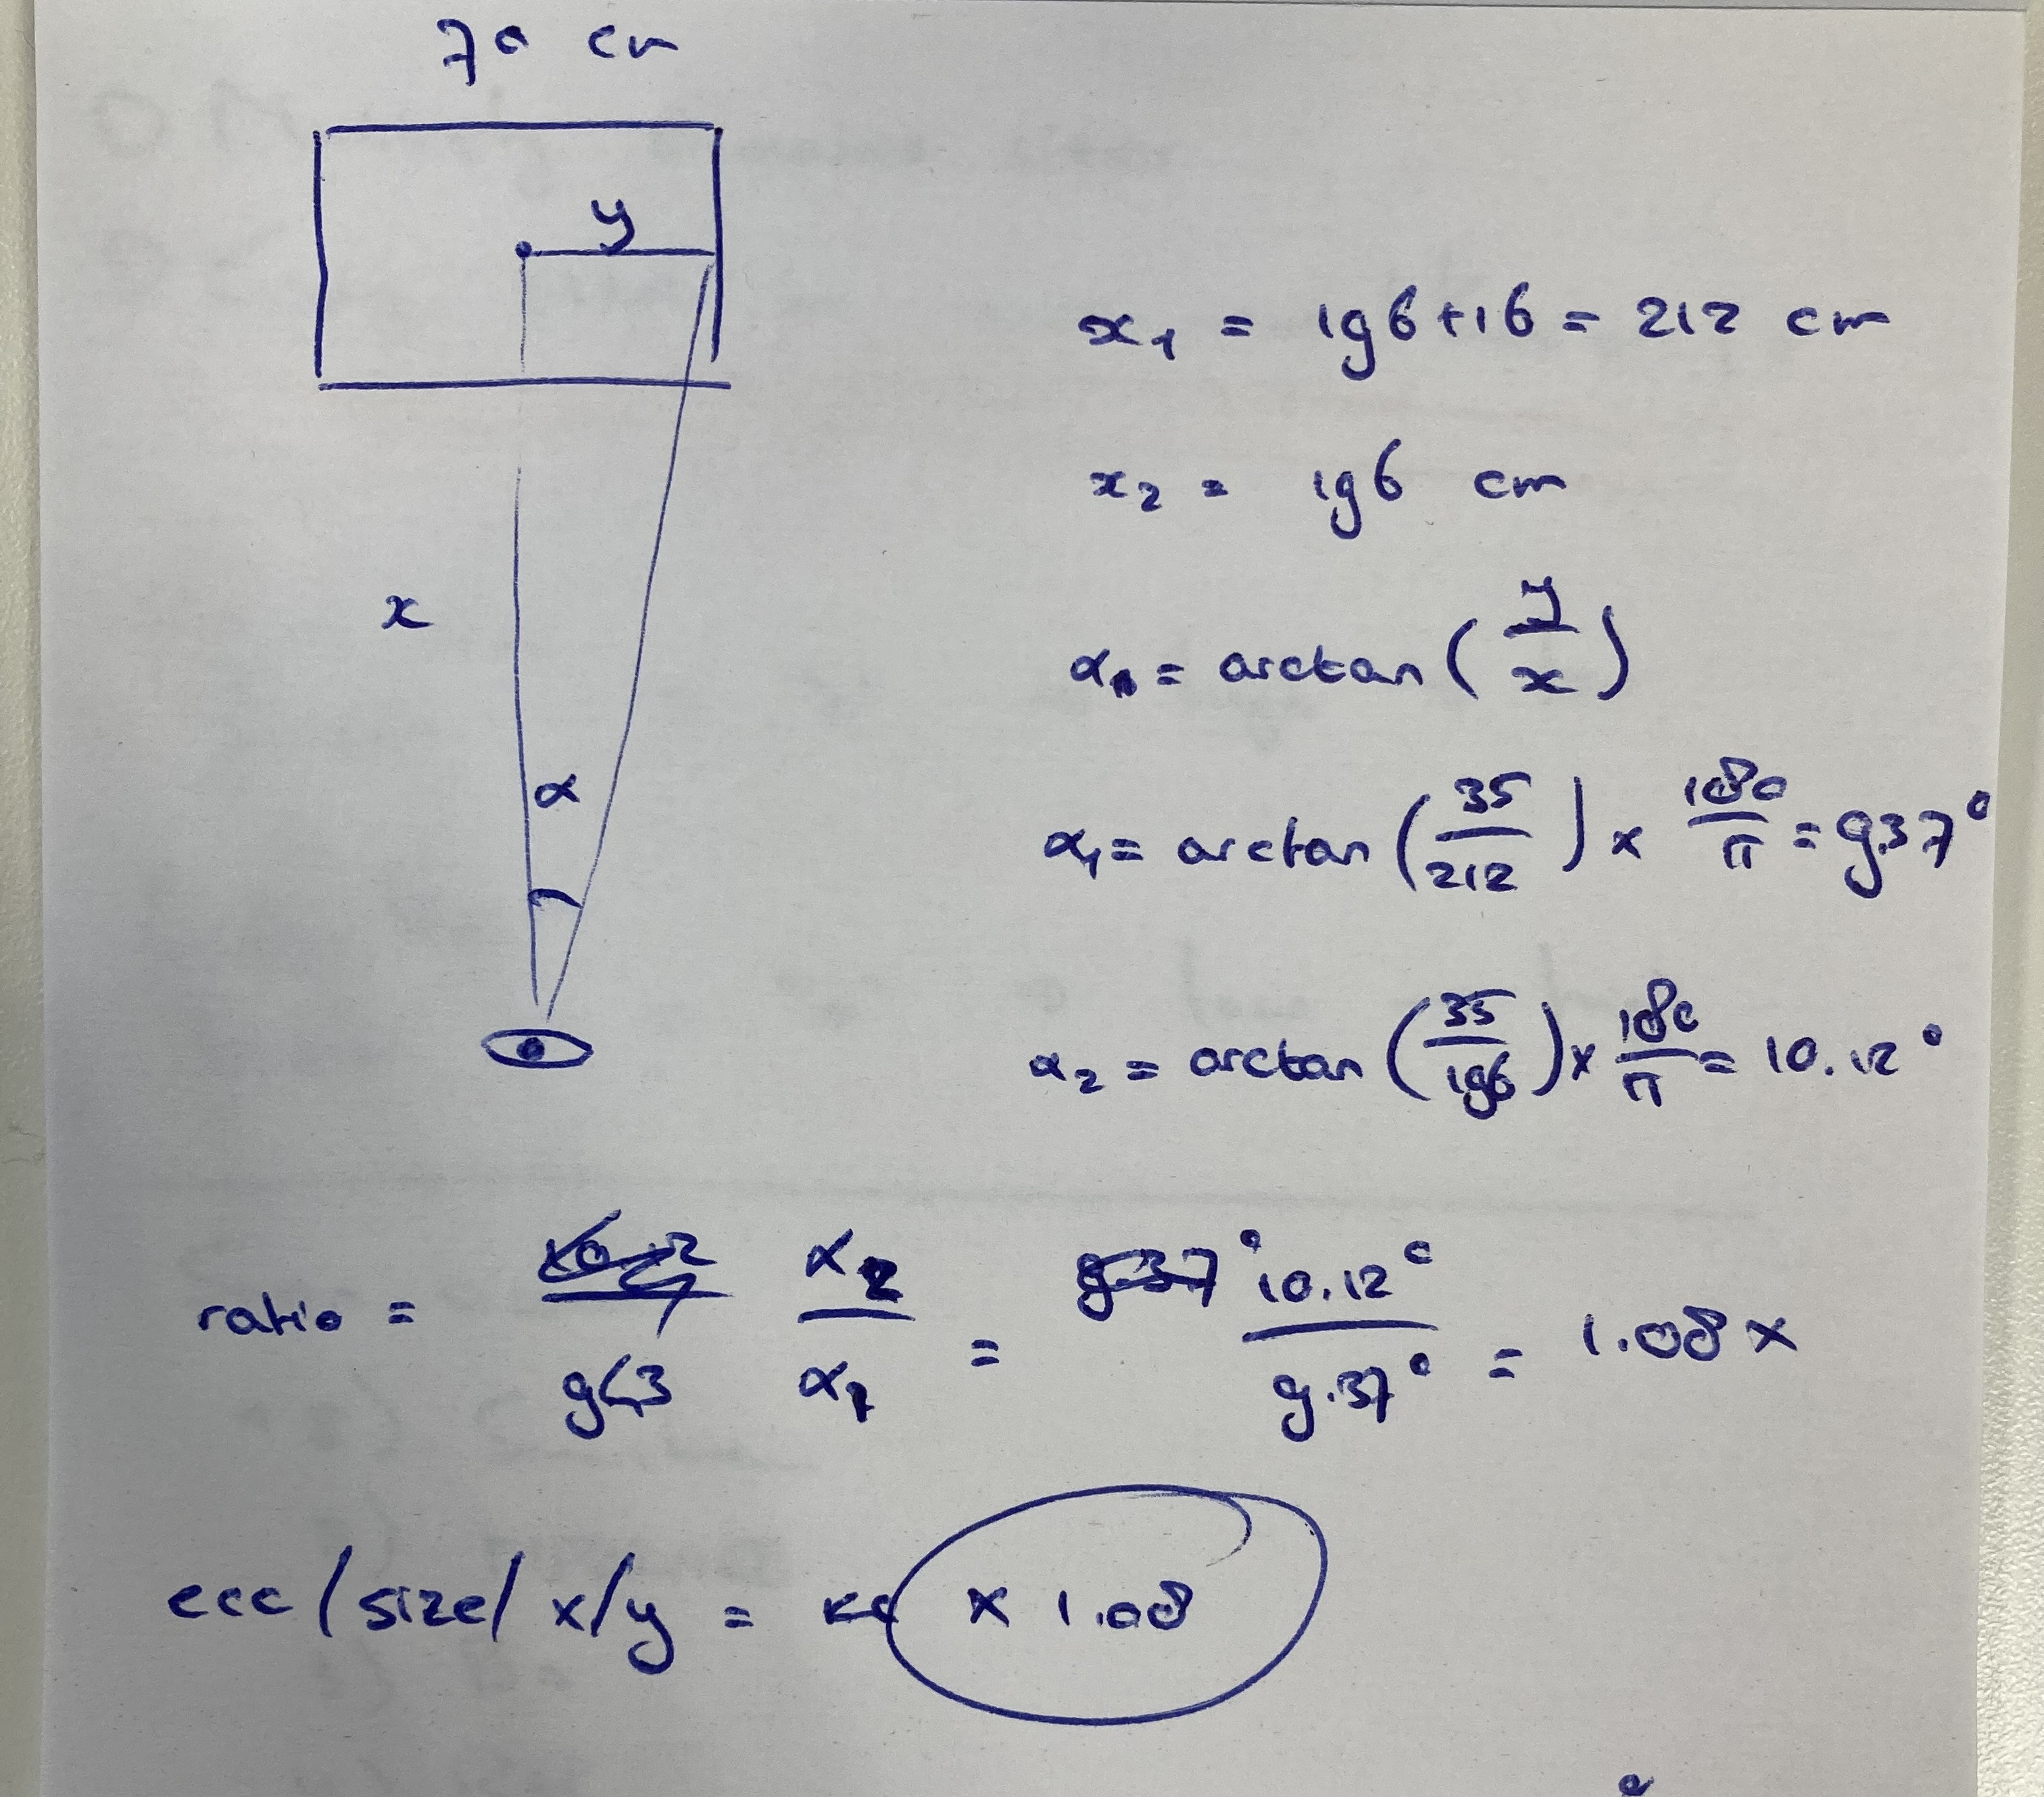 70 cm
y
x₁ = 196+16 = 212 cm
x₂ = 196 cm
x
α = arctan(y/x)
α
α₁ = arctan(35/212) x 180/π = 9.37°
α₂ = arctan(35/196) x 180/π = 10.12°
ratio = α₂/α₁ = 10.12°/9.37° = 1.08 x
ecc/size/ x/y = x 1.08